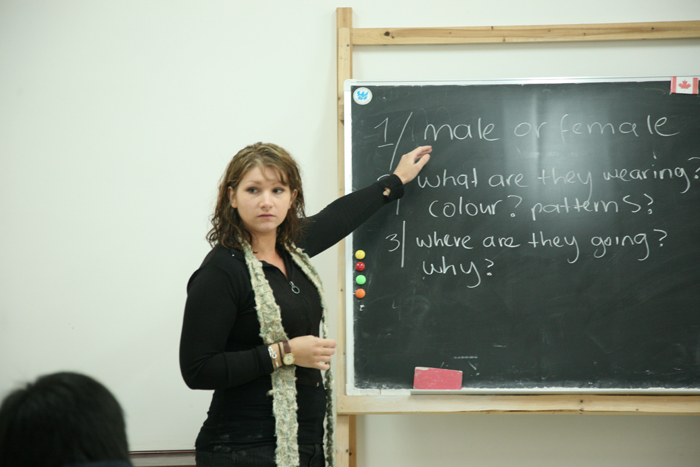 1/ male or female
what are they wearing?
colour? patterns?
3| where are they going?
why?